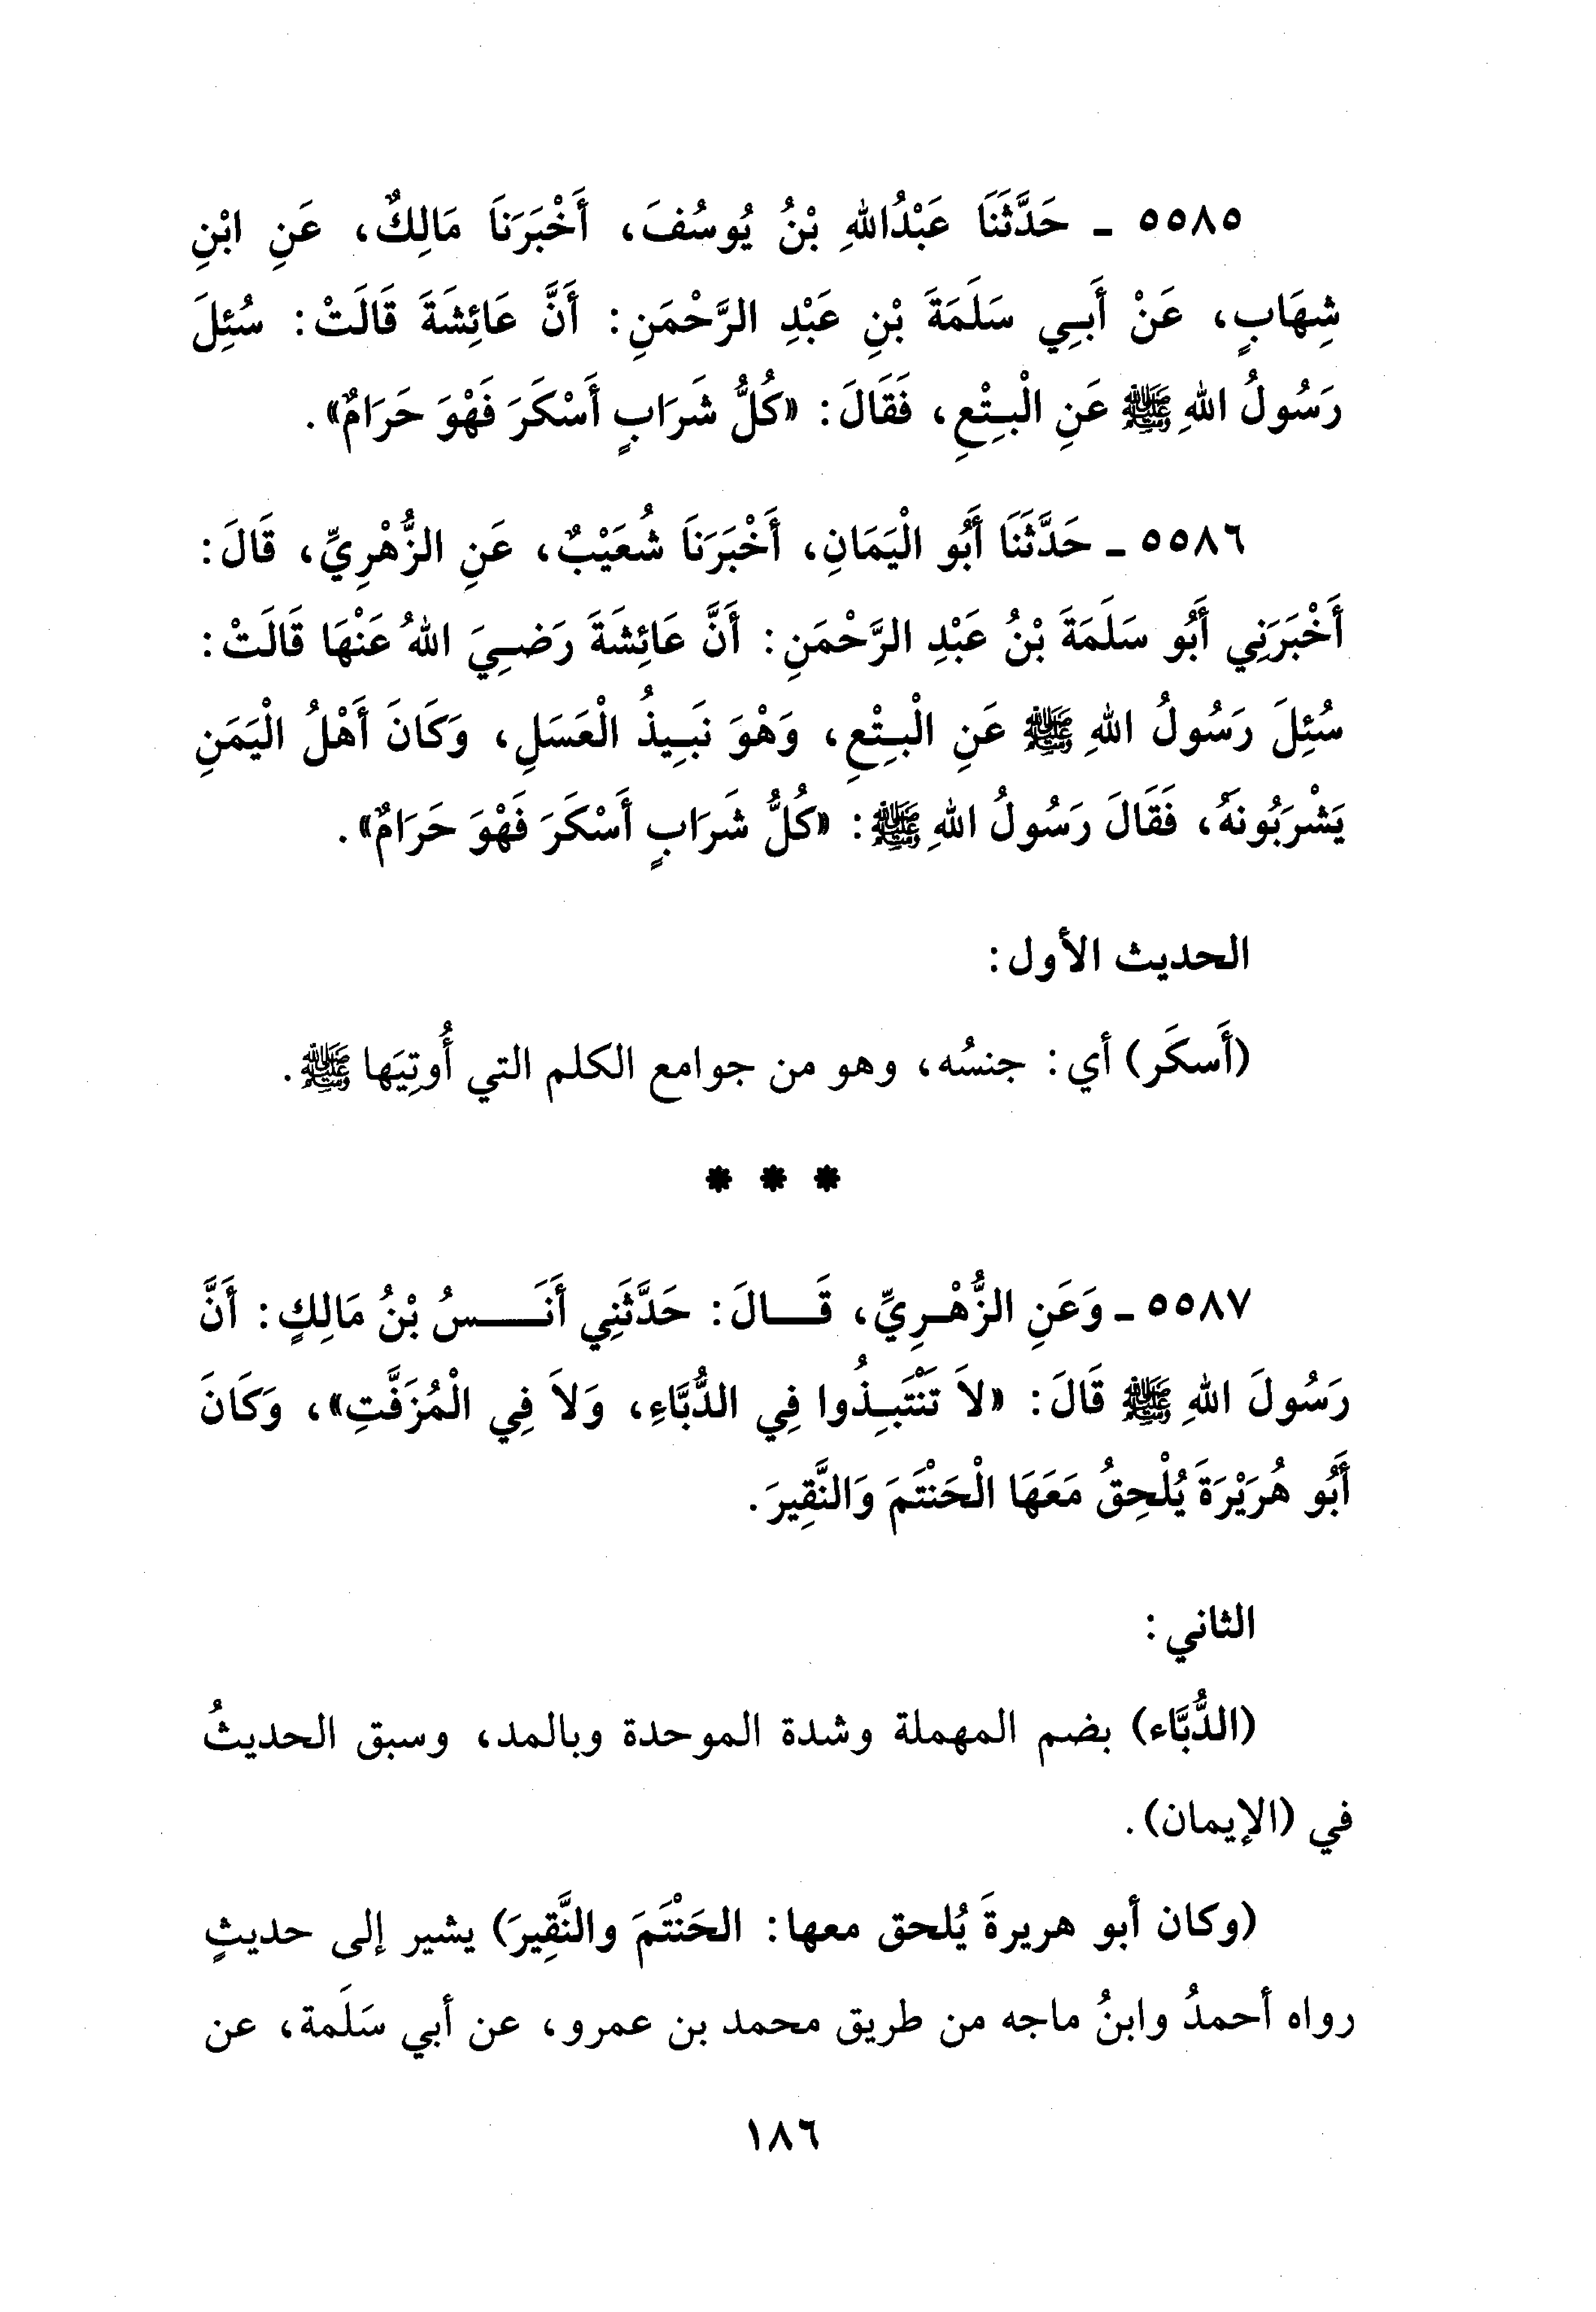 ٥٥٨٥ - حَدَّثَنَا عَبْدُاللهِ بْنُ يُوسُفَ، أَخْبَرَنَا مَالِكٌ، عَنِ ابْنِ
شِهَابٍ، عَنْ أَبِي سَلَمَةَ بْنِ عَبْدِ الرَّحْمَنِ: أَنَّ عَائِشَةَ قَالَتْ: سُئِلَ
رَسُولُ اللهِ ﷺ عَنِ الْبِتْعِ، فَقَالَ: «كُلُّ شَرَابٍ أَسْكَرَ فَهْوَ حَرَامٌ».
٥٥٨٦ - حَدَّثَنَا أَبُو الْيَمَانِ، أَخْبَرَنَا شُعَيْبٌ، عَنِ الزُّهْرِيِّ، قَالَ:
أَخْبَرَنِي أَبُو سَلَمَةَ بْنُ عَبْدِ الرَّحْمَنِ: أَنَّ عَائِشَةَ رَضِيَ اللهُ عَنْهَا قَالَتْ:
سُئِلَ رَسُولُ اللهِ ﷺ عَنِ الْبِتْعِ، وَهْوَ نَبِيذُ الْعَسَلِ، وَكَانَ أَهْلُ الْيَمَنِ
يَشْرَبُونَهُ، فَقَالَ رَسُولُ اللهِ ﷺ: «كُلُّ شَرَابٍ أَسْكَرَ فَهْوَ حَرَامٌ».
الحديث الأول:
(أَسكَر) أي: جنسُه، وهو من جوامع الكلم التي أُوتِيَها ﷺ.
* * *
٥٥٨٧ - وَعَنِ الزُّهْرِيِّ، قَالَ: حَدَّثَنِي أَنَسُ بْنُ مَالِكٍ: أَنَّ
رَسُولَ اللهِ ﷺ قَالَ: «لاَ تَنْتَبِذُوا فِي الدُّبَّاءِ، وَلاَ فِي الْمُزَفَّتِ»، وَكَانَ
أَبُو هُرَيْرَةَ يُلْحِقُ مَعَهَا الْحَنْتَمَ وَالنَّقِيرَ.
الثاني:
(الدُّبَّاء) بضم المهملة وشدة الموحدة وبالمد، وسبق الحديثُ
في (الإيمان).
(وكان أبو هريرةَ يُلحق معها: الحَنْتَمَ والنَّقِيرَ) يشير إلى حديثٍ
رواه أحمدُ وابنُ ماجه من طريق محمد بن عمرو، عن أبي سَلَمة، عن
١٨٦